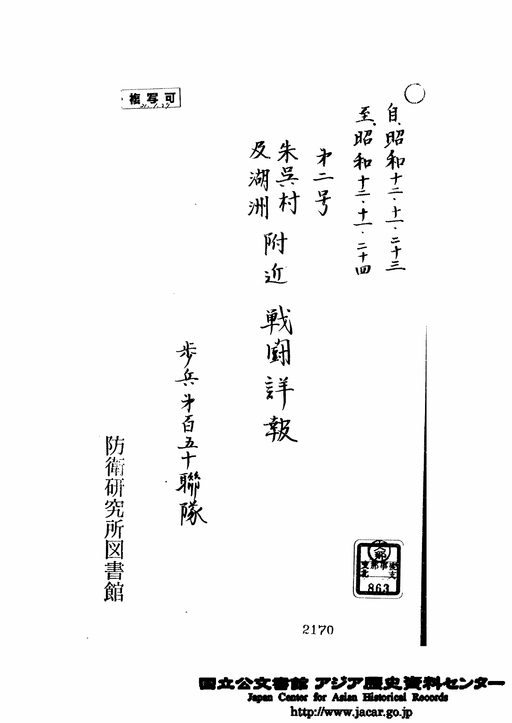 複写可
自昭和十二・十一・二十三
至昭和十二・十一・二十四
才二号
朱呉村
及湖洲
附近
戦闘詳報
歩兵才百五十聯隊
防衛研究所図書館
863
2170
国立公文書館 アジア歴史資料センター
Japan Center for Asian Historical Records
http://www.jacar.go.jp